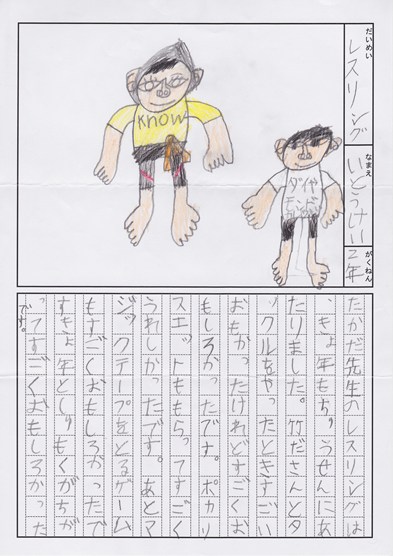 だいめい
レスリング
なまえ
いとうけい
がくねん
2年
Know
ダイヤ
モンド
たかだ先生のレスリングは
、きょ年もちゅうせんにあ
たりました。竹ださんとタ
ックルをやったときすごい
おもかったけれどすごくお
もしろかったです。ポカリ
スエットももらってすごく
うれしかったです。あとマ
ジックテープをとるゲーム
もすごくおもしろかったで
すきょ年としゅもくがちが
ってすごくおもしろかった
です。